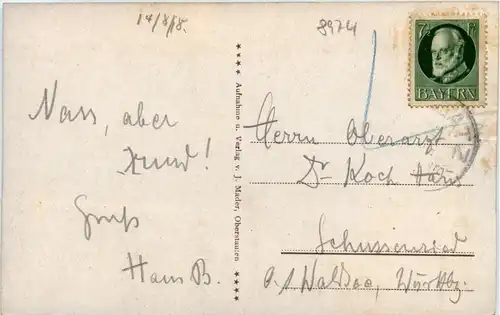 14/8/18.
8974
Nass, aber
Xund!
Gruß
Hans B.
**** Aufnahme u. Verlag v. J. Mader, Oberstaufen ****
7½ Pf
BAYERN
Herrn Oberarzt
Dr Koch Hans
Schussenried
O. A. Waldsee, Württbg.